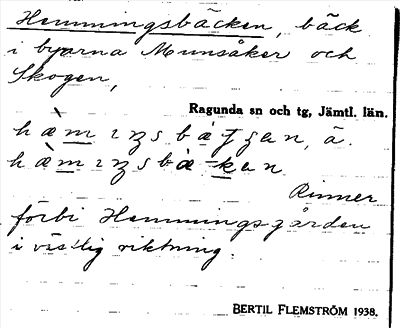 Hemmingsbäcken, bäck
i byarna Munsåker och
Skogen,
Ragunda sn och tg, Jämtl. län.
Rinner
förbi Hemmingsgården
i västlig riktning.
BERTIL FLEMSTRÖM 1938.